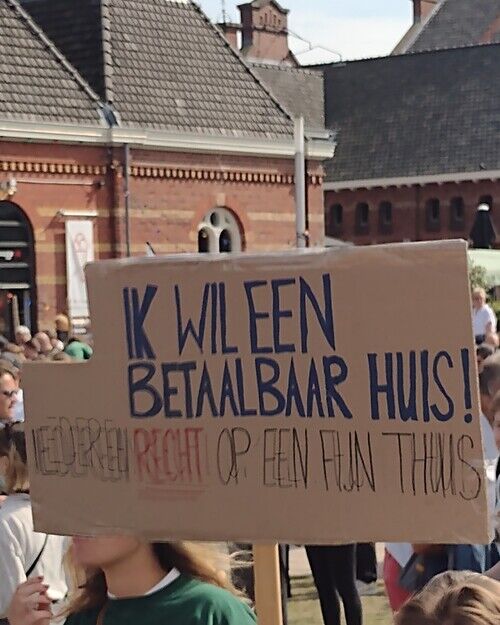 IK WIL EEN
BETAALBAAR HUIS!
IEDEREEN RECHT OP EEN FIJN THUIS